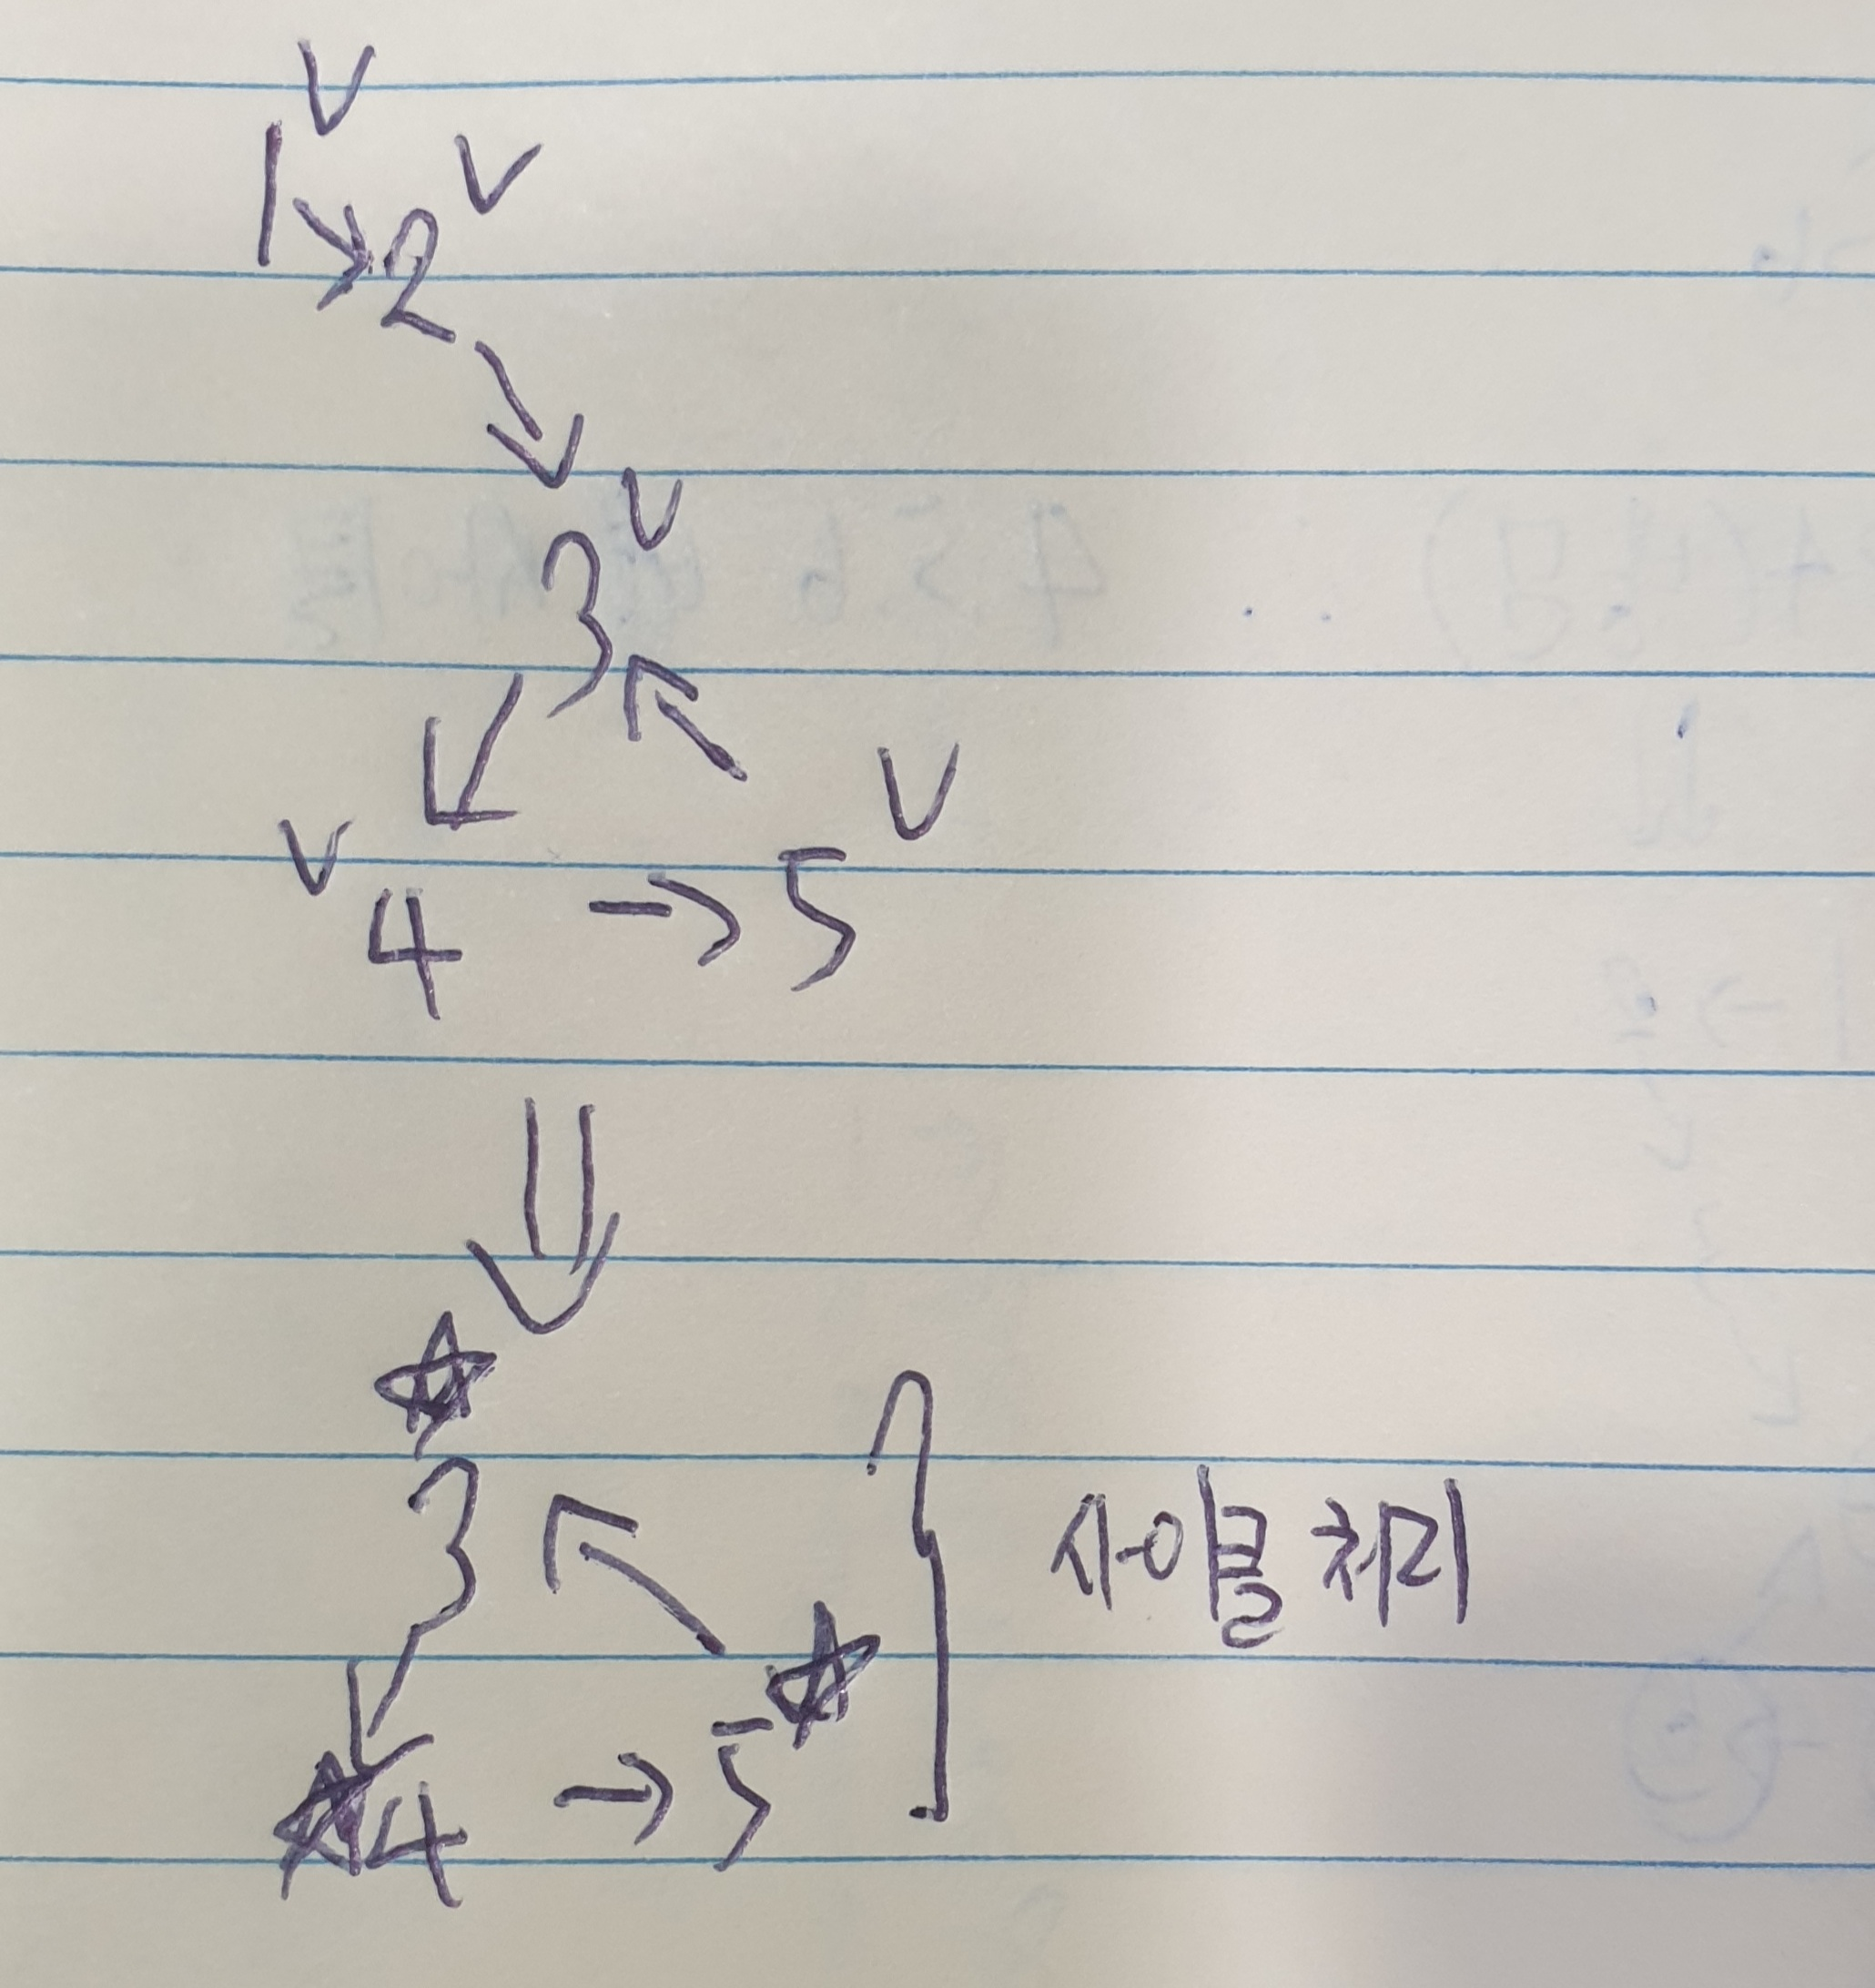 1 V
→ 2 V
↓
3 V
↙ ↖
V 4 → 5 V
⇓
☆
3 ↖
↙ ☆
☆ 4 → 5
사이클 처리